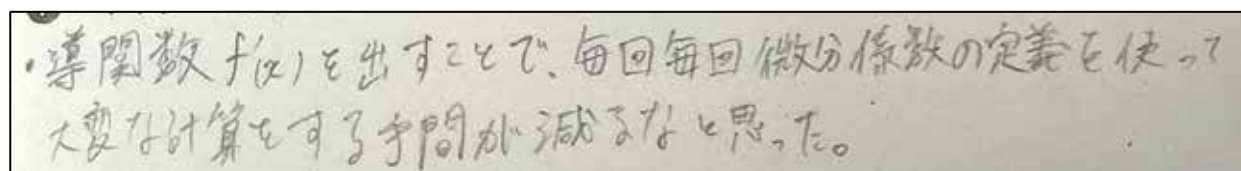 ・導関数 f'(x) を出すことで、毎回毎回微分係数の定義を使って
大変な計算をする手間が減るなと思った。